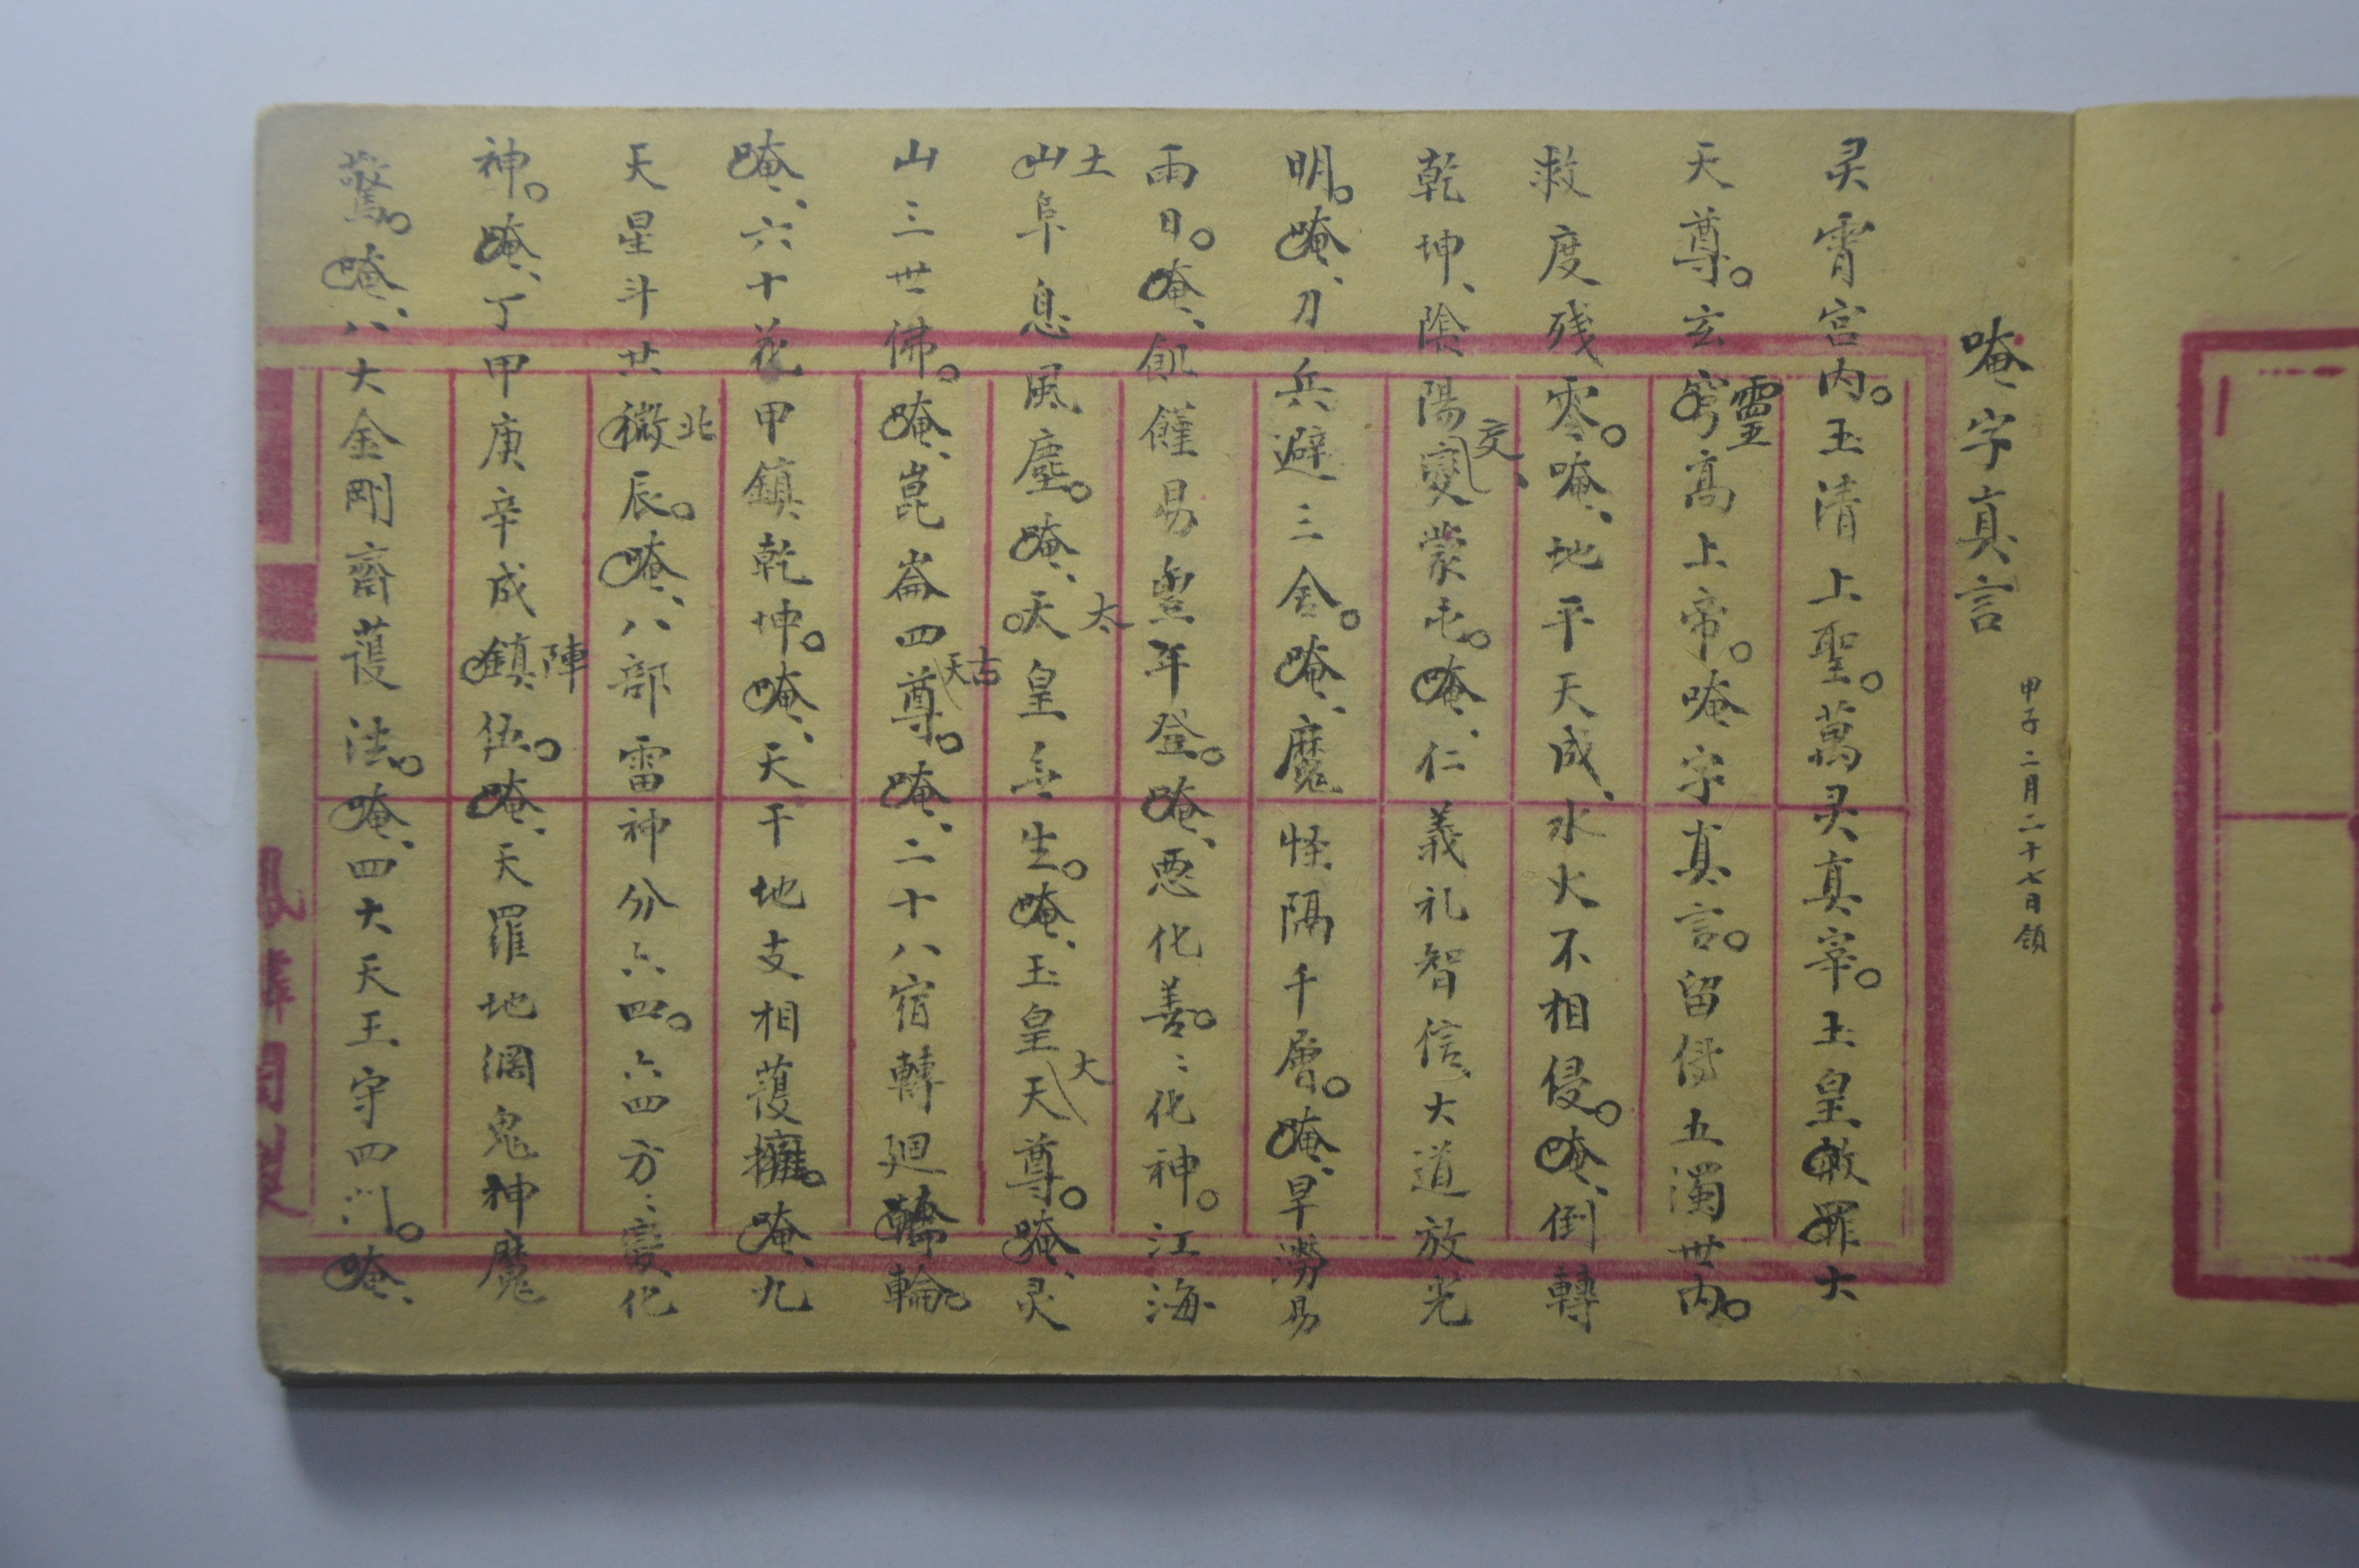 唵字真言
甲子二月二十七日領
灵霄宫内。玉清上聖。萬灵真宰。玉皇赦罪大
天尊。玄穹靈高上帝。唵字真言。留传五濁世内。
救度残零。唵、地平天成、水火不相侵。唵、倒轉
乾坤、陰陽變交、蒙屯。唵、仁義礼智信、大道放光
明。唵、刀兵避三舍。唵、魔怪隔千層。唵、旱澇易
雨日。唵、飢饉易豐年登。唵、悪化善。〻化神。江海
山土阜息風塵。唵、天太皇無生。唵、玉皇天大尊。唵、灵
山三世佛。唵、崑崙四尊吉天。唵、二十八宿轉廻輪。
唵、六十花甲鎮乾坤。唵、天干地支相護擁。唵、九
天星斗共微北辰。唵、八部雷神分六四。六四方〻變化
神。唵、丁甲庚辛成鎮陣伍。唵、天羅地網鬼神魔
驚。唵、八大金剛齋護法。唵、四大天王守四门。唵、